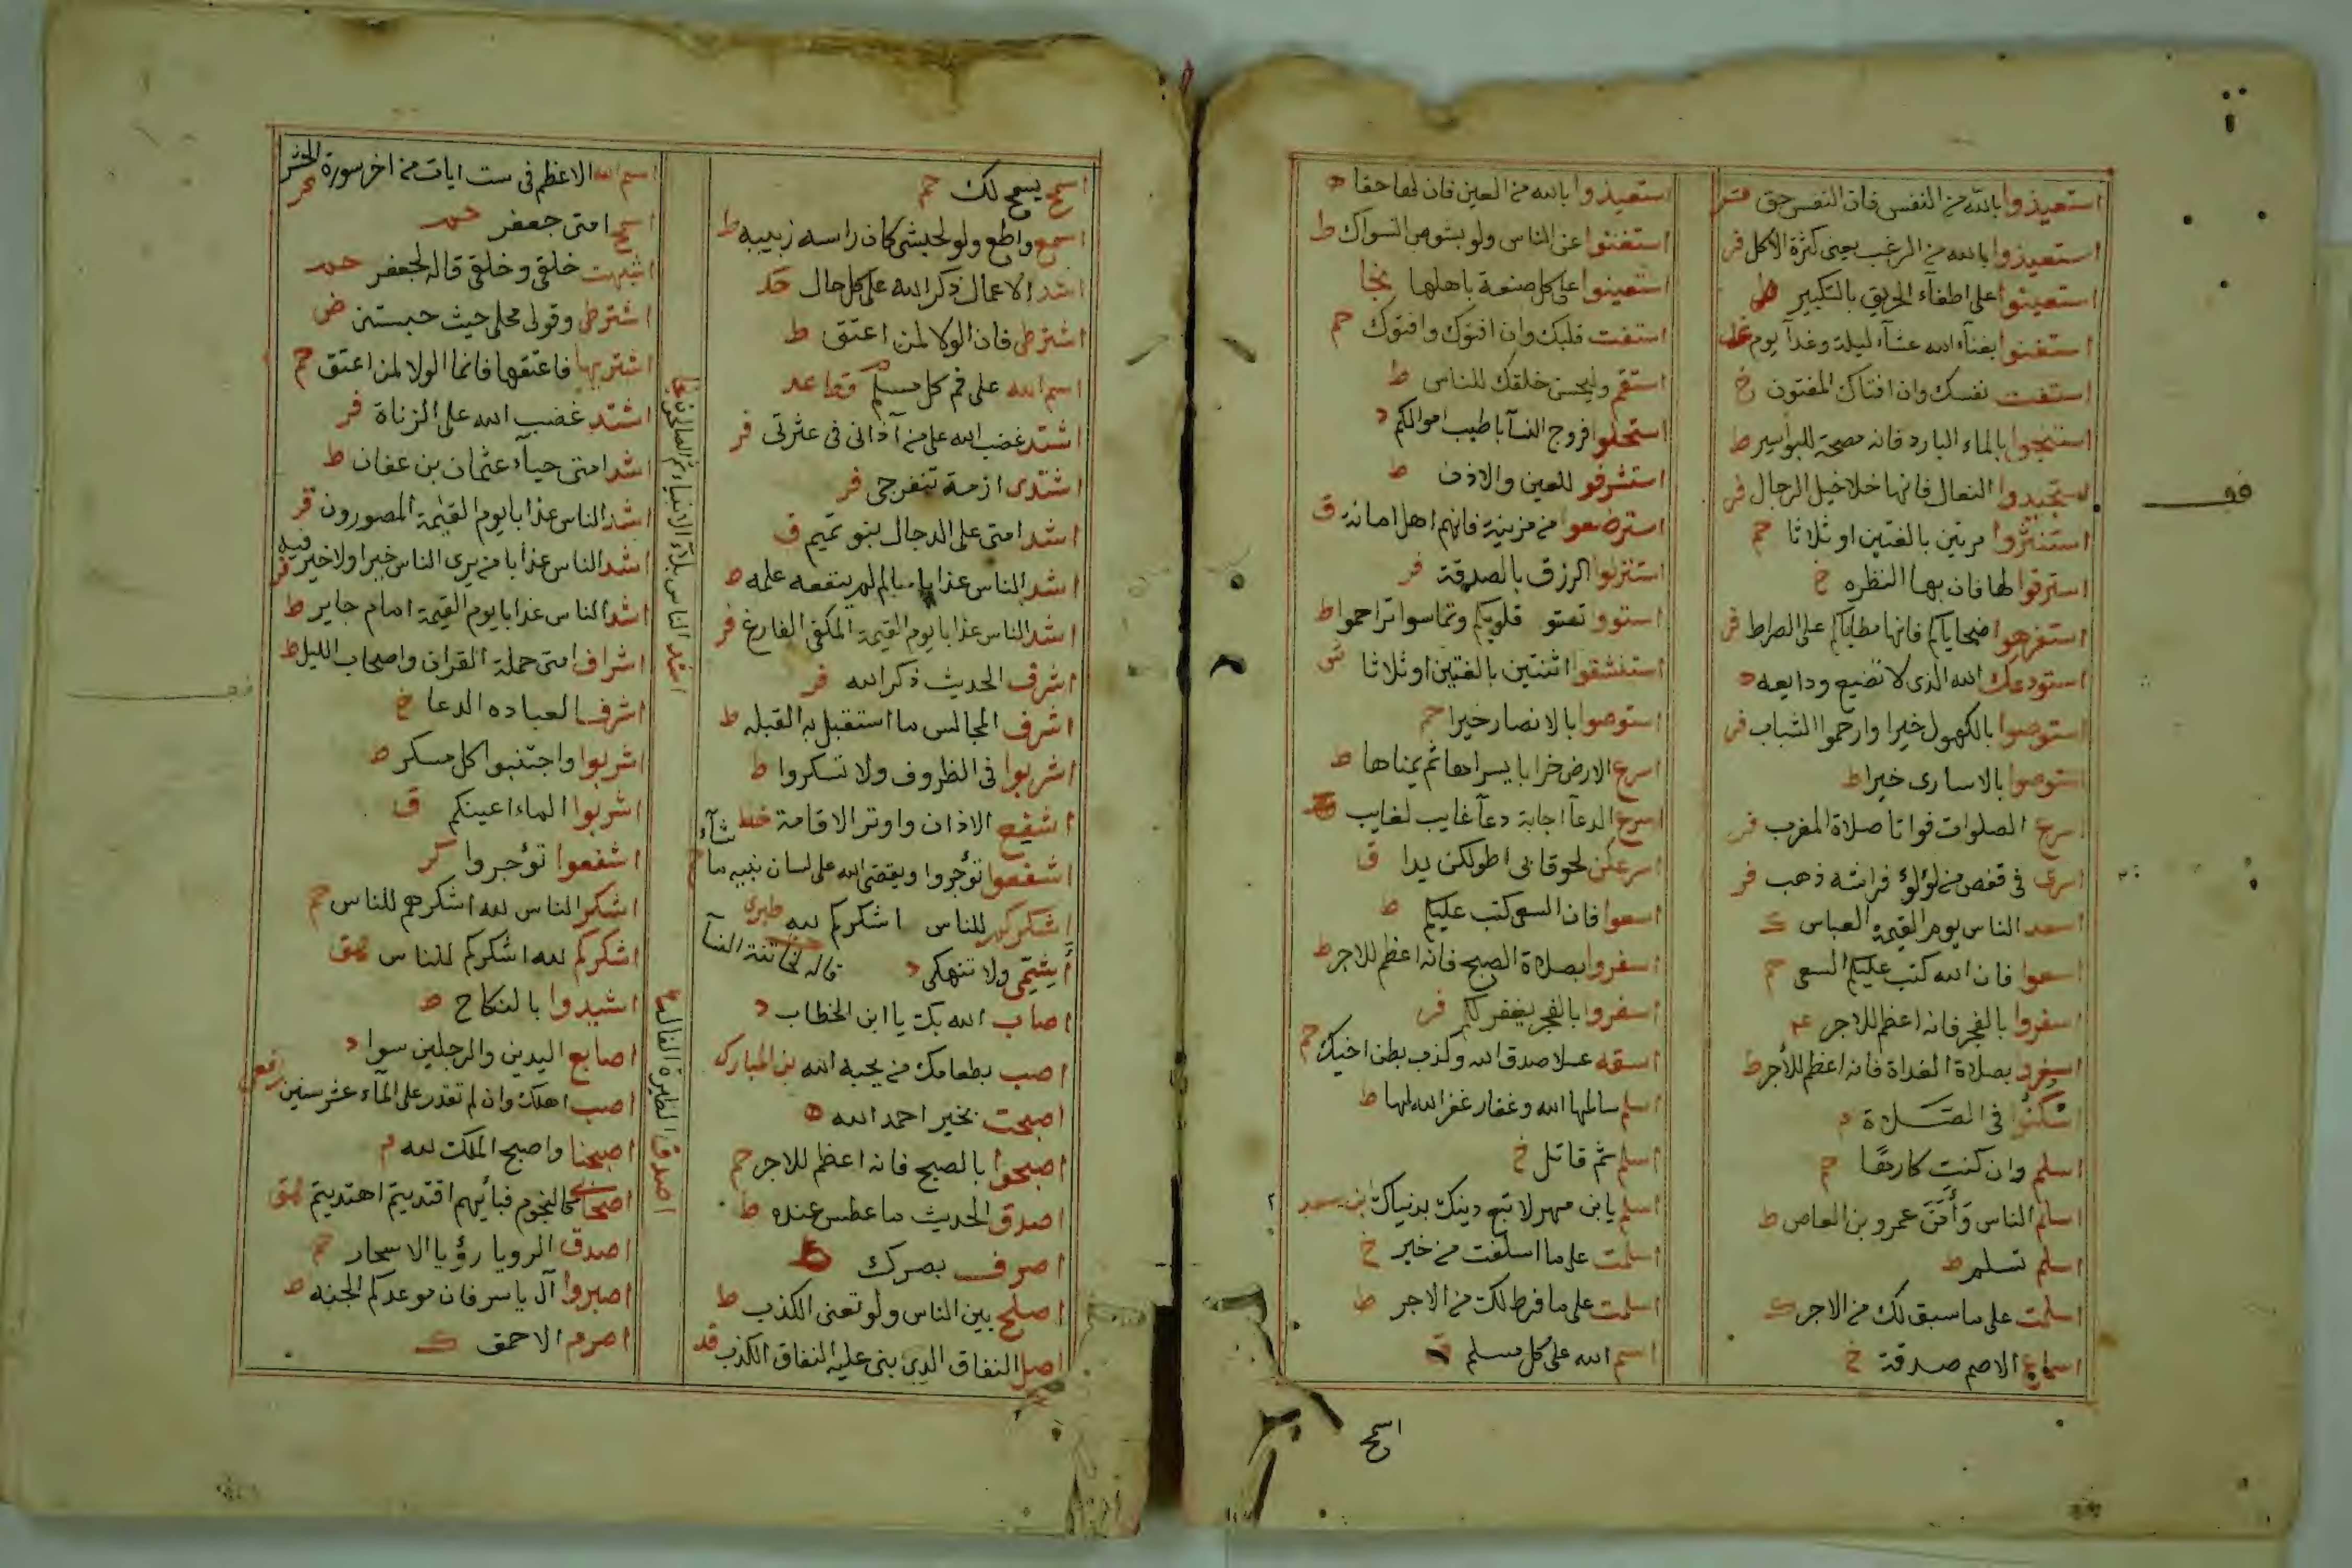 استعيذوا بالله من النفس فان النفس حق
استعيذوا بالله من الرغب يعنى كثرة الاكل فر
استعينوا على اطفاء الحريق بالتكبير ط
استغنوا بغناء الله عشاء ليلة وغدا يوم
استفت نفسك وان افتاك المفتون خ
استنجوا بالماء البارد فانه مصحة للبواسير ط
استجيدوا النعال فانها خلاخيل الرجال فر
استنثروا مرتين بالغتين او ثلاثا حم
استرقوا لها فان بها النظره خ
استفرهوا ضحاياكم فانها مطاياكم على الصراط فر
استودعك الله الذى لا تضيع ودايعه ه
استوصوا بالكهول خيرا وارحموا الشباب فر
استوصوا بالاسارى خيرا ط
اسرع الصلوات فواتا صلاة المغرب فر
اسرى فى قفص من لؤلؤ فراشه ذهب فر
اسعد الناس يوم القيمة العباس ك
اسعوا فان الله كتب عليكم السعى حم
اسفروا بالفجر فانه اعظم للاجر
اسفروا بصلاة الغداة فانه اعظم للأجر ط
اسْكنُوا فى الصَّلاة م
اسلم وان كنت كارها حم
اسلم الناس وَأَمنَ عمرو بن العاص ط
اسلم تسلم ط
اسلمت على ما سبق لك من الاجر ك
اسماع الاصم صدقة خ
استعيذوا بالله من العين فان لها حقا ه
استغنوا عن الناس ولو بشوص السواك ط
استعينوا على كل صنعة باهلها
استفت قلبك وان افتوك وافتوك حم
استقم وليحسن خلقك للناس ط
استحلوا فروج النسآ باطيب اموالكم د
استشرفو للعين والاذن ط
استرضعوا من مزينة فانهم اهل امانة ق
استنزلوا الرزق بالصدقة فر
استوو تستو قلوبكم وتماسوا تراحموا ط
استنشقوا اثنتين بالغتين او ثلاثا
استوصوا بالانصار خيرا حم
اسرع الارض خرابا يسراها ثم يمناها ط
اسرع الدعآ اجابة دعآ غايب لغايب
اسرعكن لحوقا بى اطولكن يدا ق
اسعوا فان السعى كتب عليكم ط
اسفروا بصلاة الصبح فانه اعظم للاجر ط
اسفروا بالفجر يغفر لكم فر
اسقه عسلا صدق الله وكذب بطن اخيك حم
اسلم سالمها الله وغفار غفر الله لها ط
اسلم ثم قاتل خ
اسلم يا بن مهر لا تبع دينك بدنياك ابن سعد
اسلمت على ما اسلفت من خير خ
اسلمت على ما فرط لك من الاجر ط
اسم الله على كل مسلم
اسمح
اسمح يسمح لك حم
اسمع واطع ولو لحبشى كان راسه زبيبه ط
اشد الاعمال ذكر الله على كل حال
اشترطى فان الولا لمن اعتق ط
اسم الله على فم كل مسلم
اشتد غضب الله على من آذانى فى عترتى فر
اشتدى ازمة تنفرجى فر
اشد امتى على الدجال بنو تميم ق
اشد الناس عذابا عالم لم ينفعه علمه
اشد الناس عذابا يوم القيمة المكفى الفارغ فر
اشرف الحديث ذكر الله فر
اشرف المجالس ما استقبل به القبله ط
اشربوا فى الظروف ولا تسكروا ط
اشفع الاذان واوتر الاقامة خط
اشفعوا تؤجروا ويقضى الله على لسان نبيه ما شآء
اشكركم للناس اشكركم لله طبرى
أشمّى ولا تنهكى د قاله لخاتنة النسآ
اصاب الله بك يا ابن الخطاب د
اصب بطعامك من يحبه الله بن المبارك
اصبحت بخير احمد الله ه
اصبحوا بالصبح فانه اعظم للاجر حم
اصدق الحديث ما عطس عنده ط
اصرف بصرك
اصلح بين الناس ولو تعنى الكذب ط
اصل النفاق الذى بنى عليه النفاق الكذب
اشد الناس بلاء الانبياء ثم الصالحون
اصدق الطيرة الفال
اسم الله الاعظم فى ست ايات من اخر سورة الحشر
اسمح امتى جعفر
اشبهت خلقى وخلقى قاله لجعفر
اشترطى وقولى محلى حيث حبستنى
اشتريها فاعتقها فانما الولا لمن اعتق حم
اشتد غضب الله على الزناة فر
اشد امتى حياء عثمان بن عفان ط
اشد الناس عذابا يوم القيمة المصورون
اشد الناس عذابا من يرى الناس خيرا ولا خير فيه فر
اشد الناس عذابا يوم القيمة امام جاير ط
اشراف امتى حملة القران واصحاب الليل ط
اشرف العباده الدعا خ
اشربوا واجتنبوا كل مسكر ط
اشربوا الماء اعينكم ق
اشفعوا تؤجروا كر
اشكر الناس لله اشكرهم للناس حم
اشكركم لله اشكركم للناس هق
اشيدوا بالنكاح ط
اصابع اليدين والرجلين سوا د
اصب اهلك وان لم تقدر على المآء عشر سنين
اصبحنا واصبح الملك لله م
اصحابى كالنجوم فبأيهم اقتديتم اهتديتم هق
اصدق الرويا رؤيا الاسحار حم
اصبروا آل ياسر فان موعدكم الجنه ط
اصرم الاحمق ك